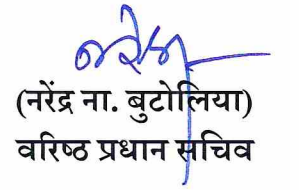 (नरेंद्र ना. बुटोलिया)
वरिष्ठ प्रधान सचिव